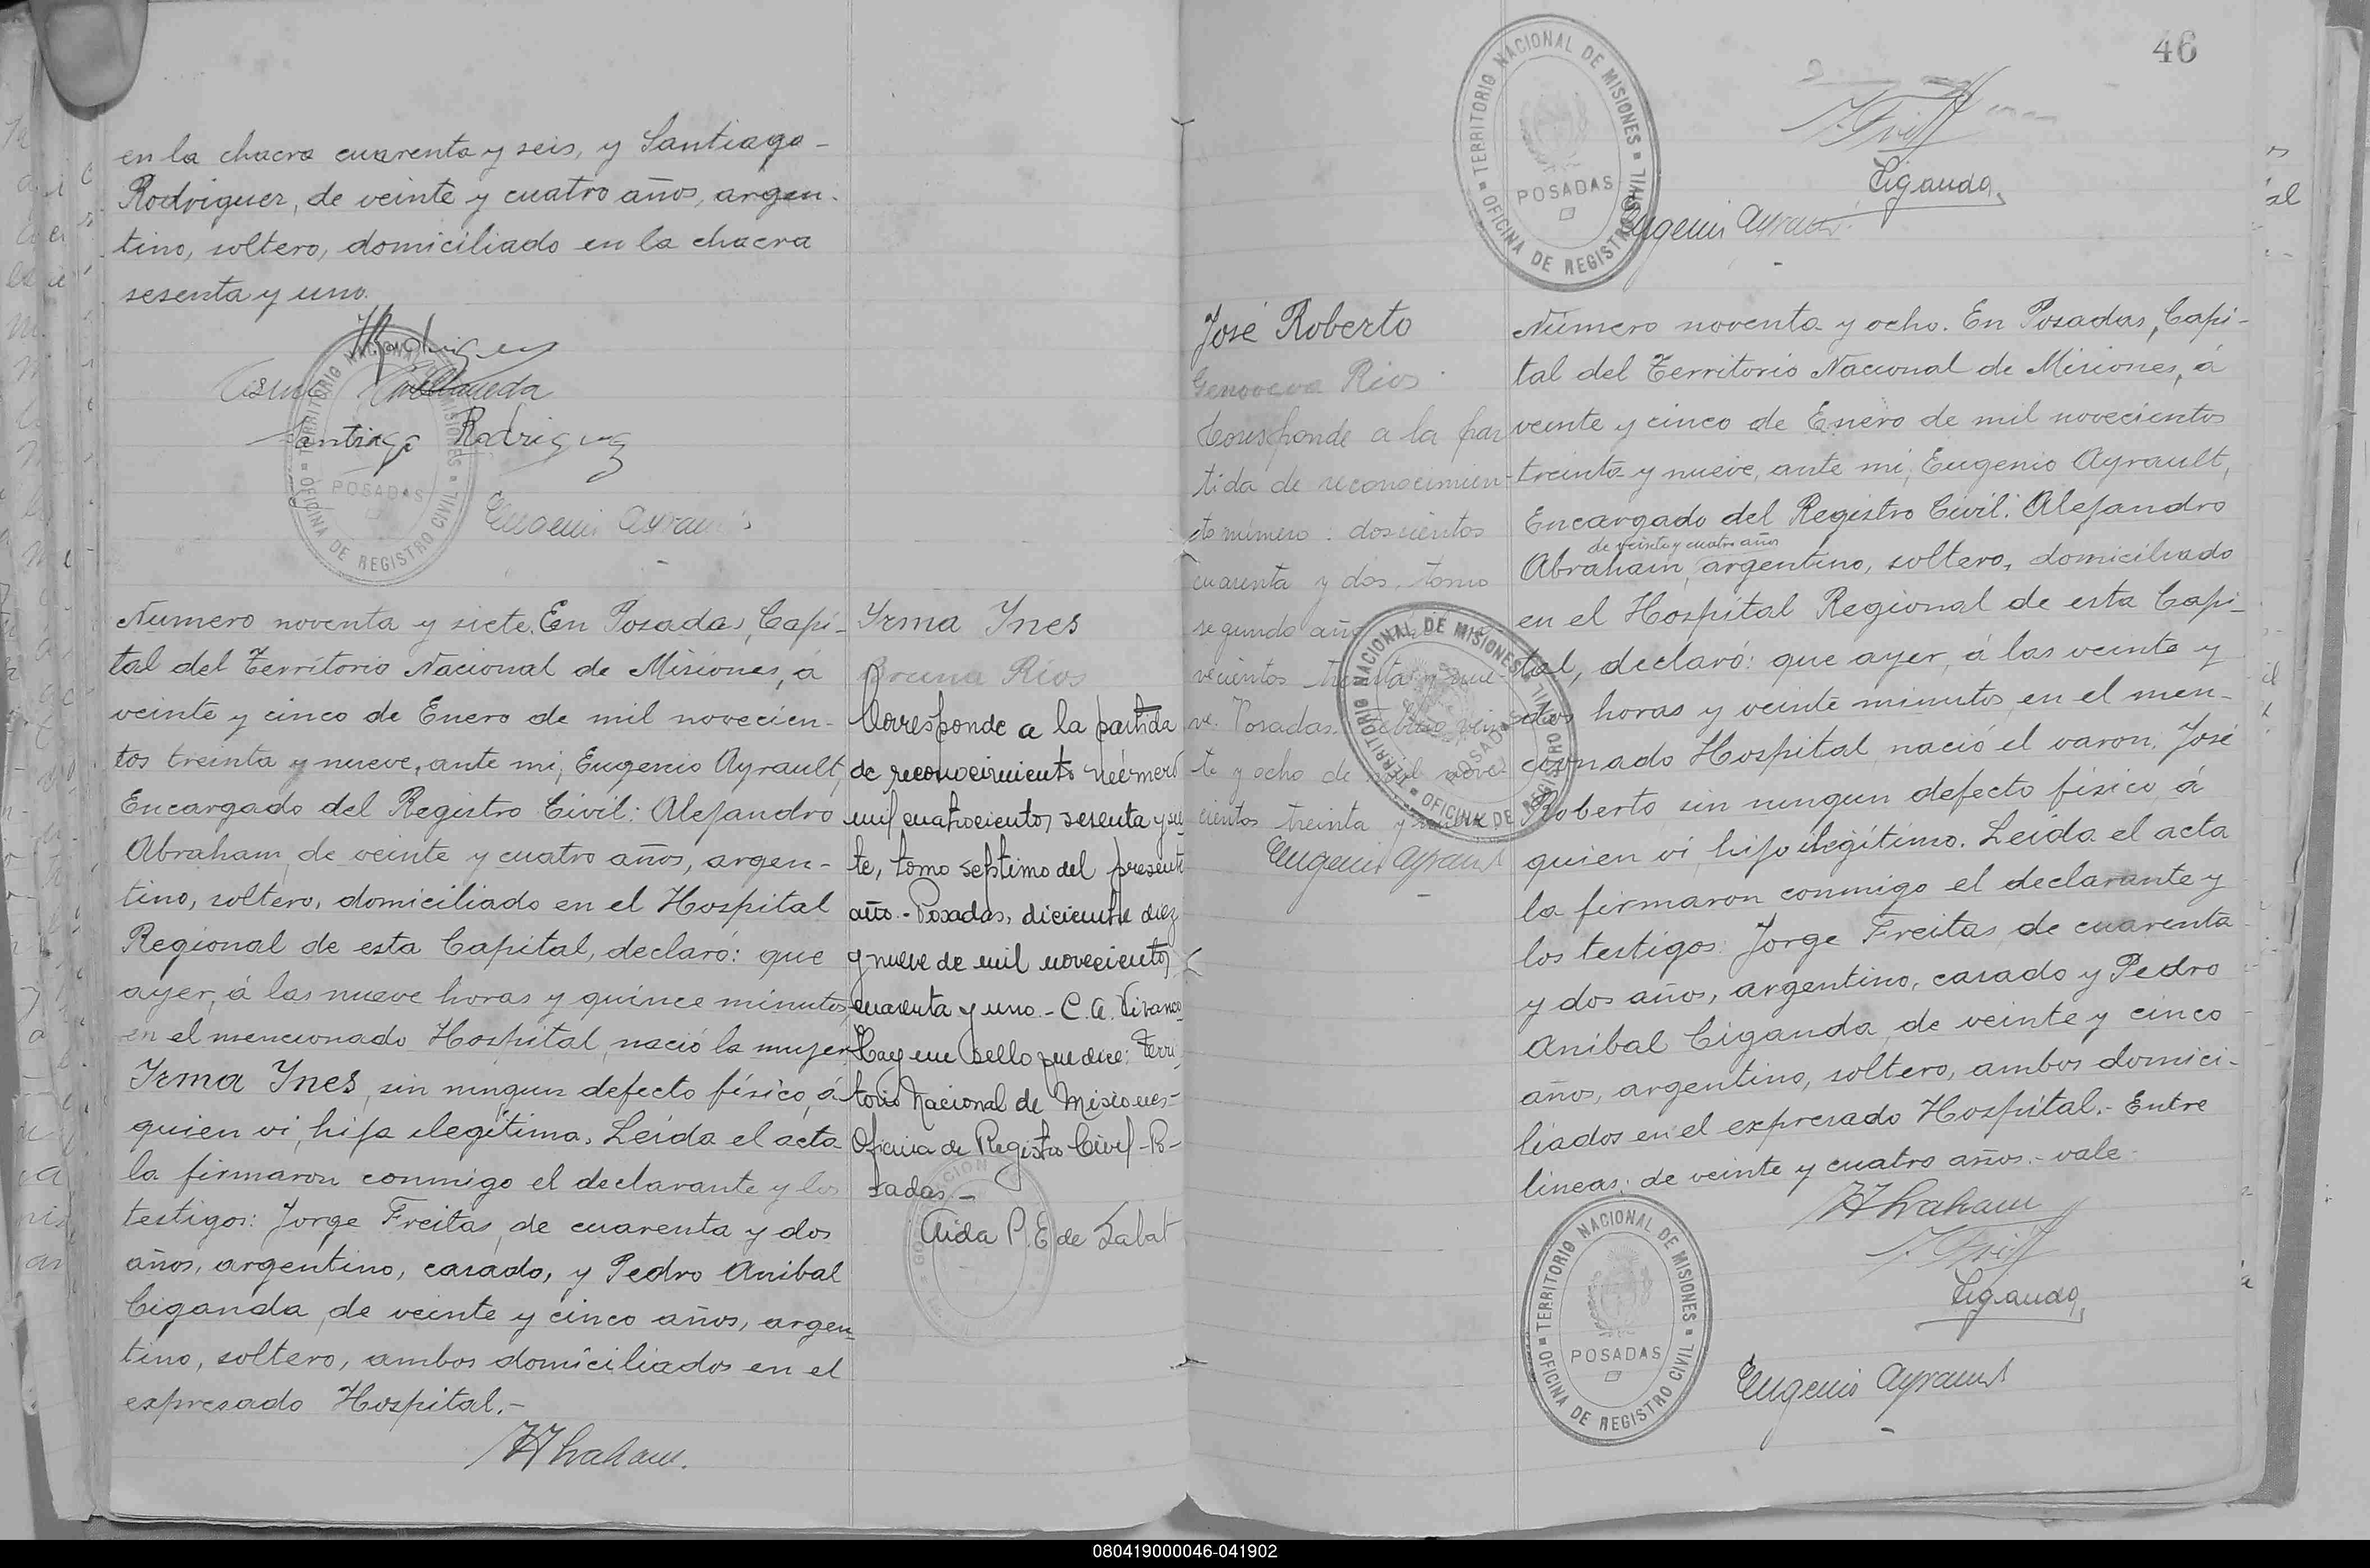 en la chacra cuarenta y seis, y Santiago-
Rodriguez, de veinte y cuatro años, argen-
tino, soltero, domiciliado en la chacra
sesenta y uno.
Rodriguez
Santiago Rodriguez
TERRITORIO NACIONAL DE MISIONES
POSADAS
OFICINA DE REGISTRO CIVIL
Eugenio Ayrault
Número noventa y siete. En Posadas, Capi-
tal del Territorio Nacional de Misiones, á
veinte y cinco de Enero de mil novecien-
tos treinta y nueve, ante mi, Eugenio Ayrault,
Encargado del Registro Civil: Alejandro
Abraham, de veinte y cuatro años, argen-
tino, soltero, domiciliado en el Hospital
Regional de esta Capital, declaró: que
ayer, á las nueve horas y quince minutos,
en el mencionado Hospital, nació la mujer
Yrma Ynes, sin ningun defecto físico, á
quien vi, hija ilegítima. Leída el acta
la firmaron conmigo el declarante y los
testigos: Jorge Freitas, de cuarenta y dos
años, argentino, casado, y Pedro Anibal
Ciganda, de veinte y cinco años, argen-
tino, soltero, ambos domiciliados en el
expresado Hospital.-
AAbraham.
Yrma Ynes
Bruna Rios
Corresponde a la partida
de reconocimiento número
mil cuatrocientos sesenta y sie-
te, tomo septimo del presente
año.- Posadas, diciembre diez
y nueve de mil novecientos
cuarenta y uno.- C. A. Vivanco
Hay un sello que dice: Terri-
torio Nacional de Misiones-
Oficina de Registro Civil-Po-
sadas.-
Aida P. E de Labat
46
TERRITORIO NACIONAL DE MISIONES
POSADAS
OFICINA DE REGISTRO CIVIL
Ciganda
Eugenio Ayrault
José Roberto
Genoveva Rios
Corresponde a la par
tida de reconocimien-
to número: doscientos
cuarenta y dos, tomo
segundo año
vecientos treinta y nue-
ve. Posadas, Febrero vein
te y ocho de mil nove-
cientos treinta y nueve
Eugenio Ayrault
TERRITORIO NACIONAL DE MISIONES
POSADAS
OFICINA DE REGISTRO CIVIL
Número noventa y ocho. En Posadas, Capi-
tal del Territorio Nacional de Misiones, á
veinte y cinco de Enero de mil novecientos
treinta y nueve, ante mi, Eugenio Ayrault,
Encargado del Registro Civil: Alejandro
de veinte y cuatro años
Abraham, argentino, soltero, domiciliado
en el Hospital Regional de esta Capi-
tal, declaró: que ayer, á las veinte y
dos horas y veinte minutos, en el men-
cionado Hospital nació el varon, José
Roberto sin ningun defecto físico, á
quien vi, hijo ilegítimo. Leída el acta
la firmaron conmigo el declarante y
los testigos: Jorge Freitas, de cuarenta
y dos años, argentino, casado y Pedro
Anibal Ciganda, de veinte y cinco
años, argentino, soltero, ambos domici-
liados en el expresado Hospital.- Entre
lineas: de veinte y cuatro años.- vale-
AAbraham
Ciganda
TERRITORIO NACIONAL DE MISIONES
POSADAS
OFICINA DE REGISTRO CIVIL
Eugenio Ayrault
080419000046-041902